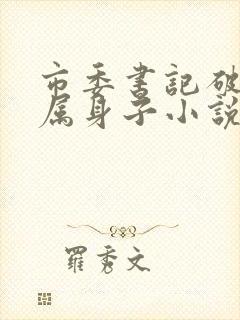 市委書記破
属身子小說
羅秀文